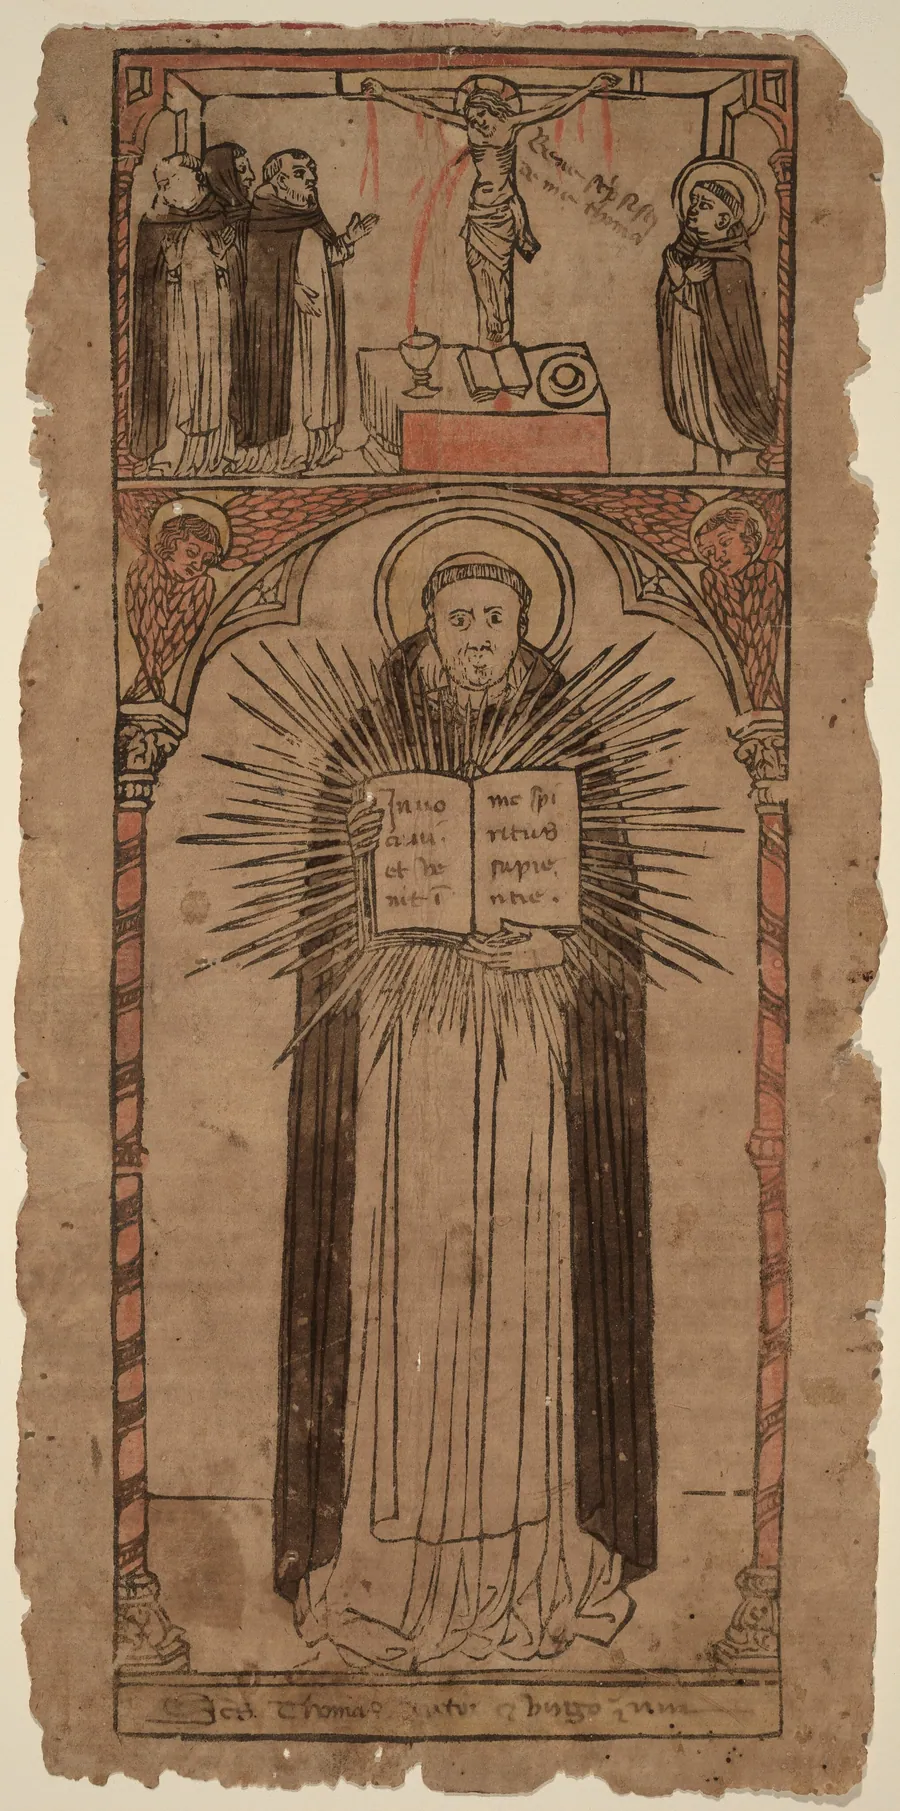 Bene scp̄sisti
de me thoma
Inuo
caui.
et ve
nit ī
me spi
ritus
sapie,
ntie.
Scs. Thomas